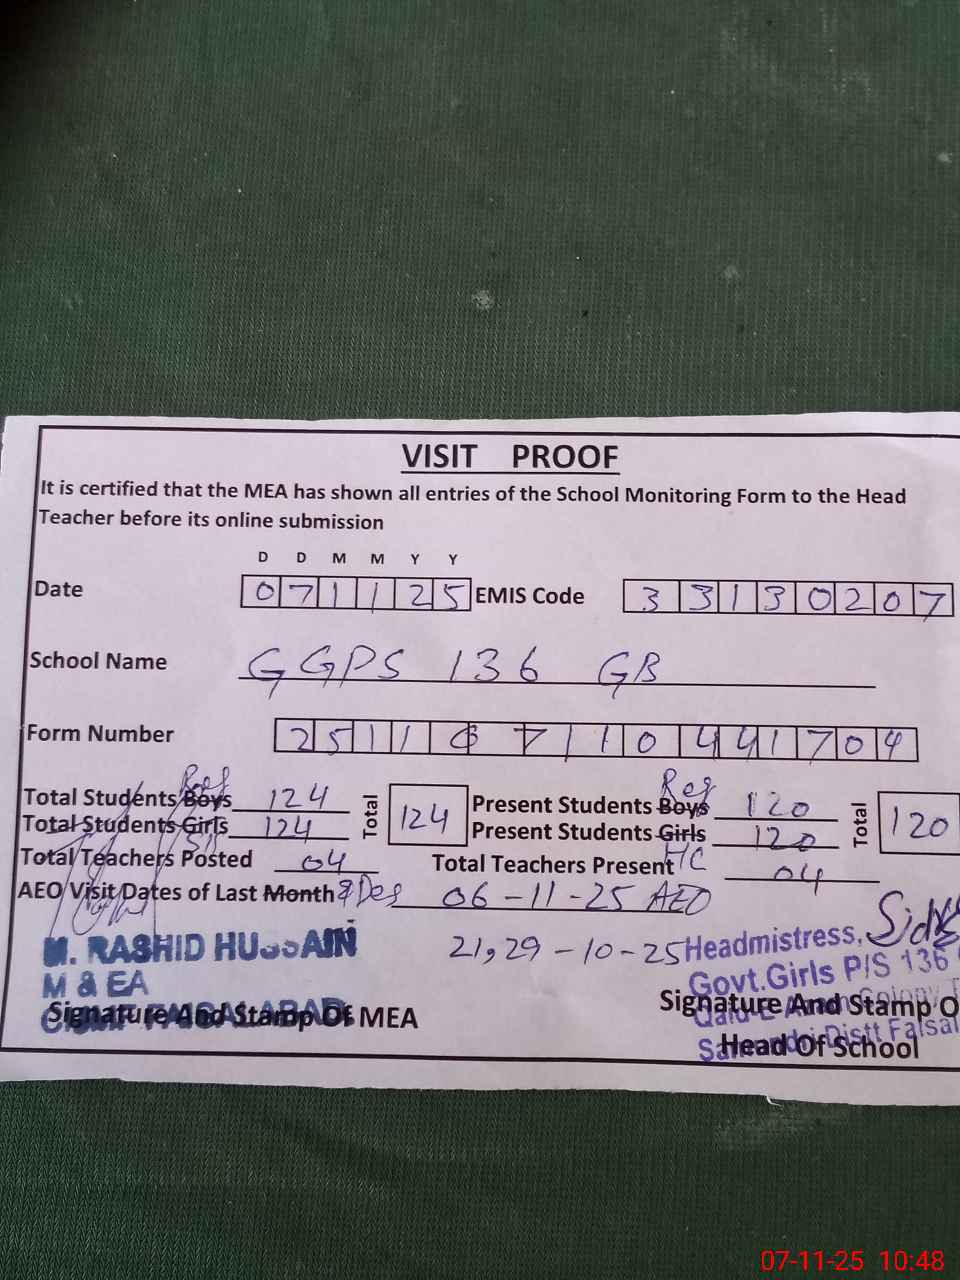 VISIT PROOF
It is certified that the MEA has shown all entries of the School Monitoring Form to the Head
Teacher before its online submission
D D M M Y Y
Date 0 7 1 1 2 5 EMIS Code 3 3 1 3 0 2 0 7
School Name GGPS 136 GB
Form Number 2 5 1 1 0 7 1 1 0 4 4 1 7 0 4
Total Students Boys Reg 124 Total 124 Present Students Boys Reg 120 Total 120
Total Students Girls 124 Present Students Girls 120
Total Teachers Posted 04 Total Teachers Present 04
AEO Visit Dates of Last Month 06-11-25 AEO
21,29-10-25
M. RASHID HUSSAIN
M & EA
FAISALABAD
Signature And Stamp Of MEA
Headmistress,
Govt.Girls P/S 136
Distt Faisal
Signature And Stamp O
Head Of School
07-11-25 10:48